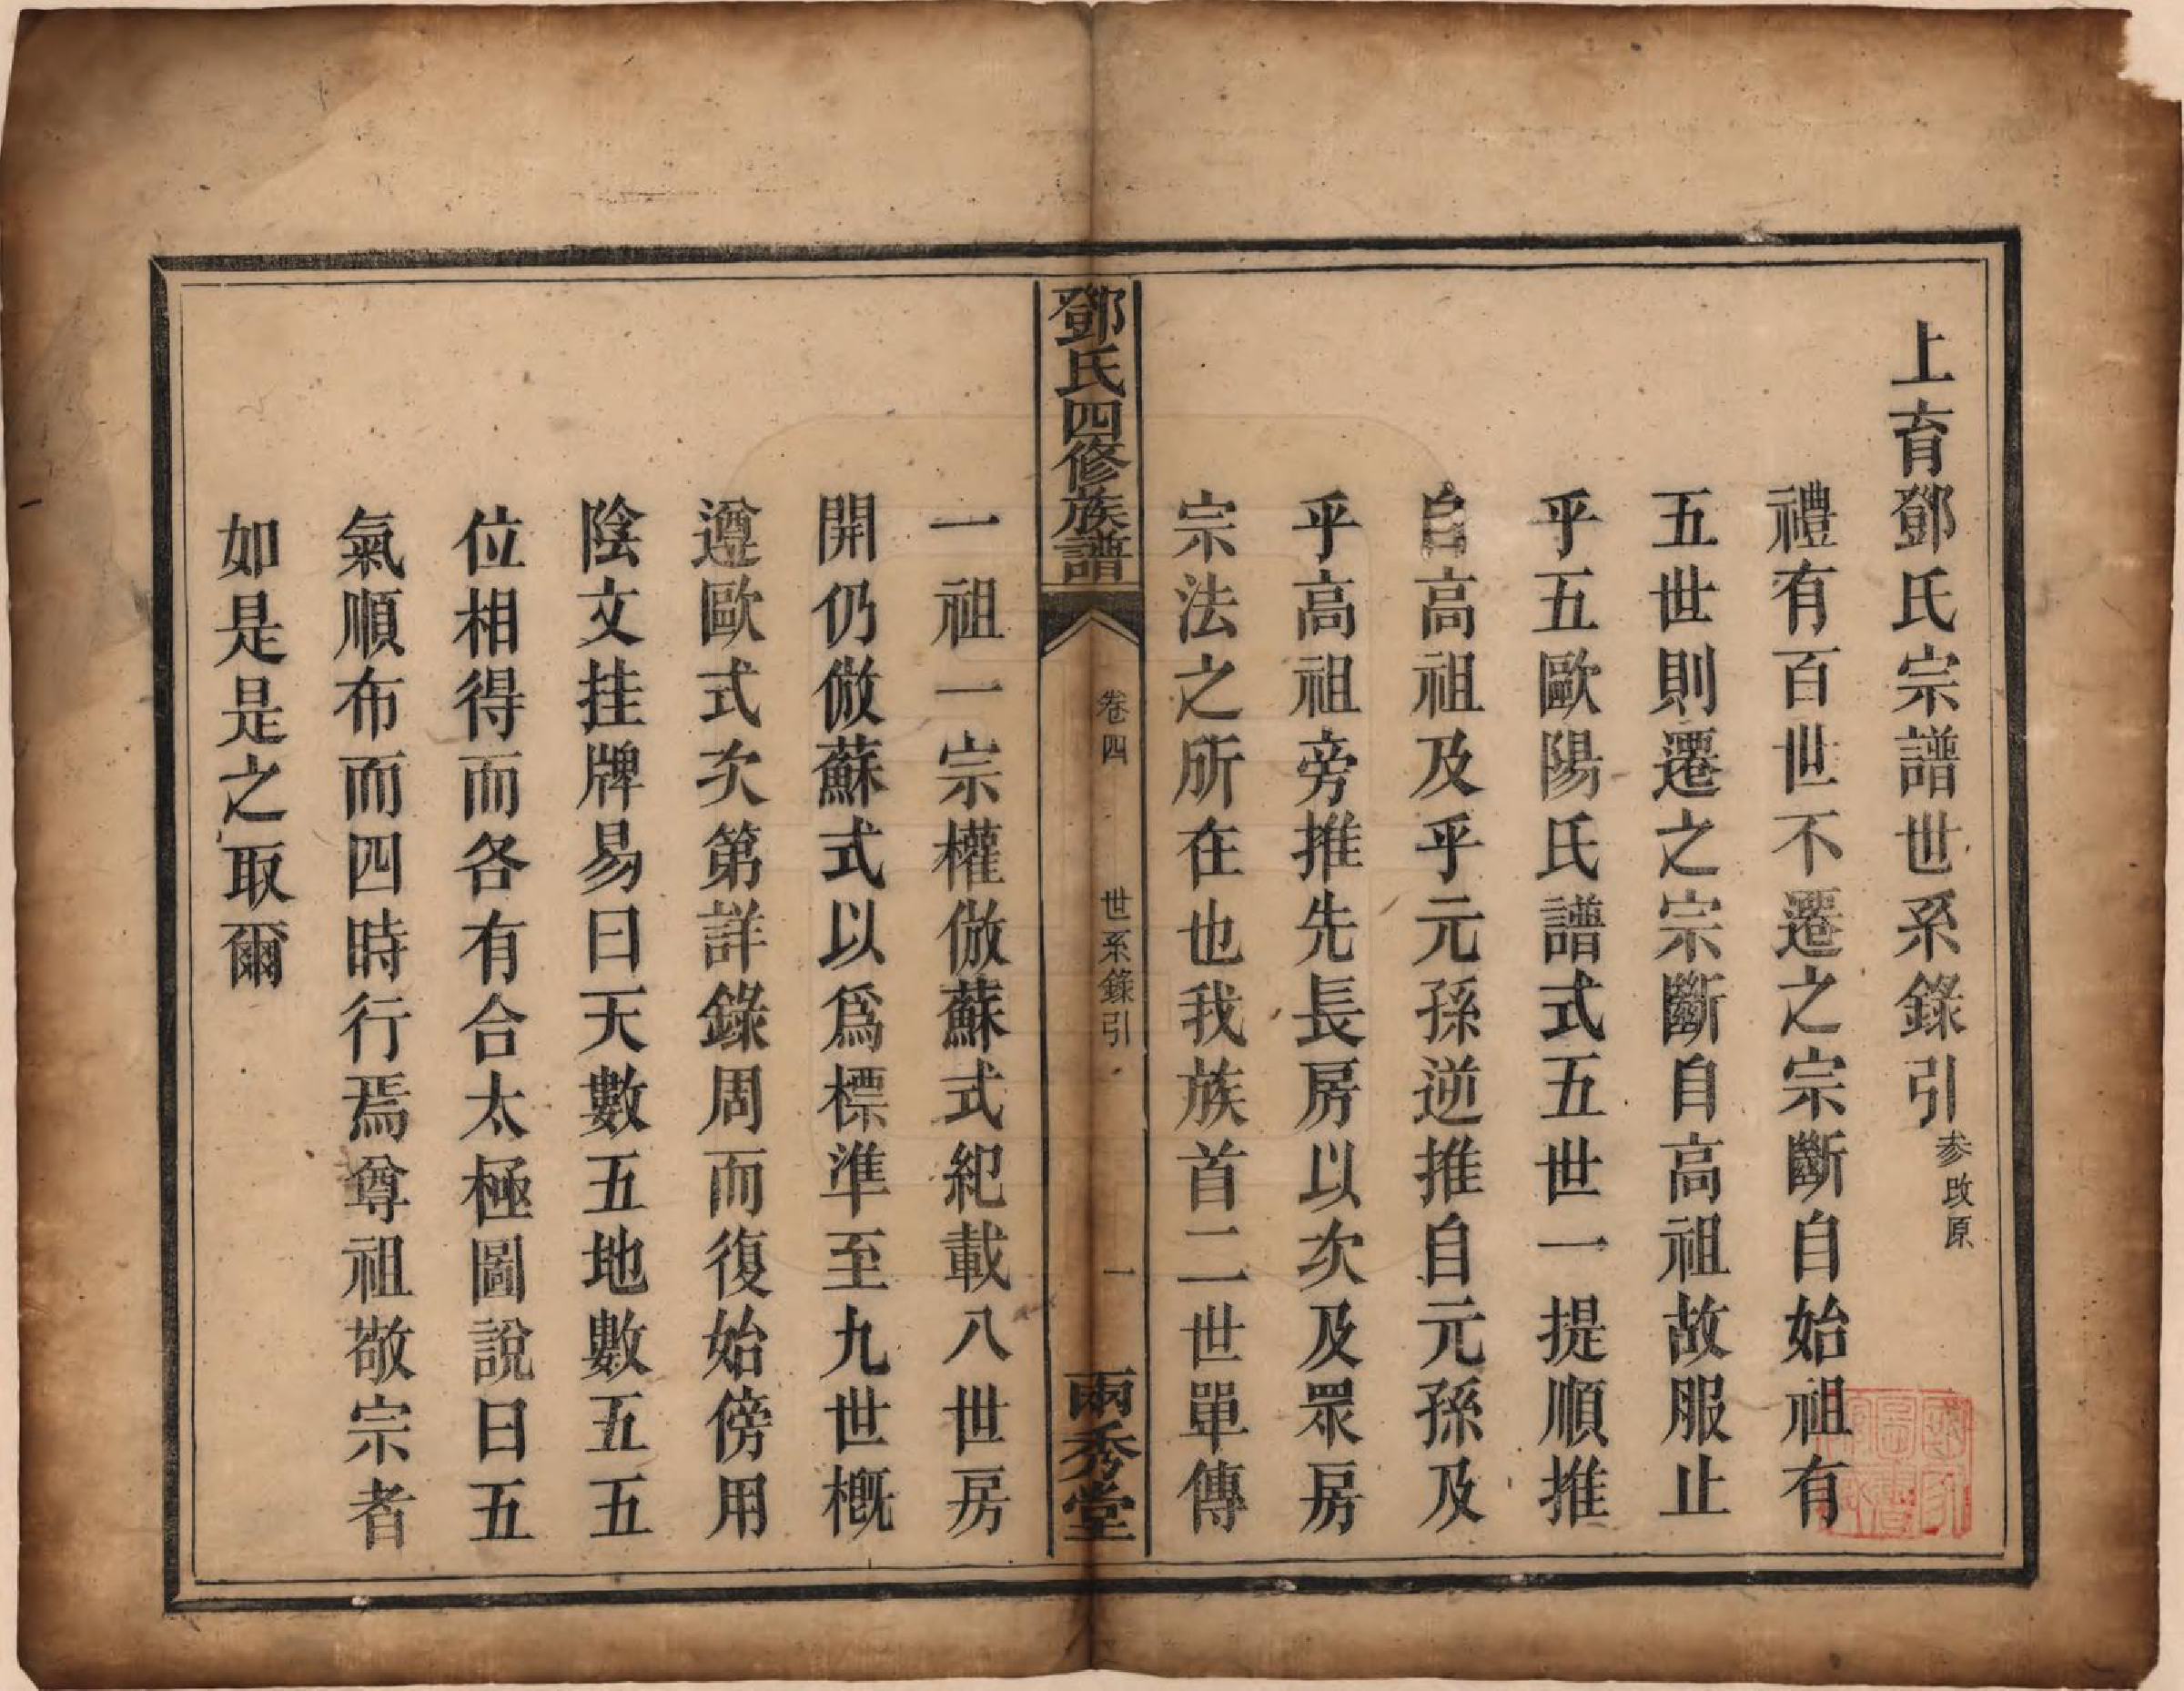 上育鄧氏宗譜世系錄引 参改原
禮有百世不遷之宗斷自始祖有
五世則遷之宗斷自高祖故服止
乎五歐陽氏譜式五世一提順推
自高祖及乎元孫逆推自元孫及
乎高祖旁推先長房以次及眾房
宗法之所在也我族首二世單傳
鄧氏四修族譜
卷四 世系錄引 一
兩秀堂
一祖一宗權倣蘇式紀載八世房
開仍倣蘇式以爲標準至九世概
遵歐式次第詳錄周而復始傍用
陰文挂牌易曰天數五地數五五
位相得而各有合太極圖說曰五
氣順布而四時行焉尊祖敬宗者
如是是之取爾